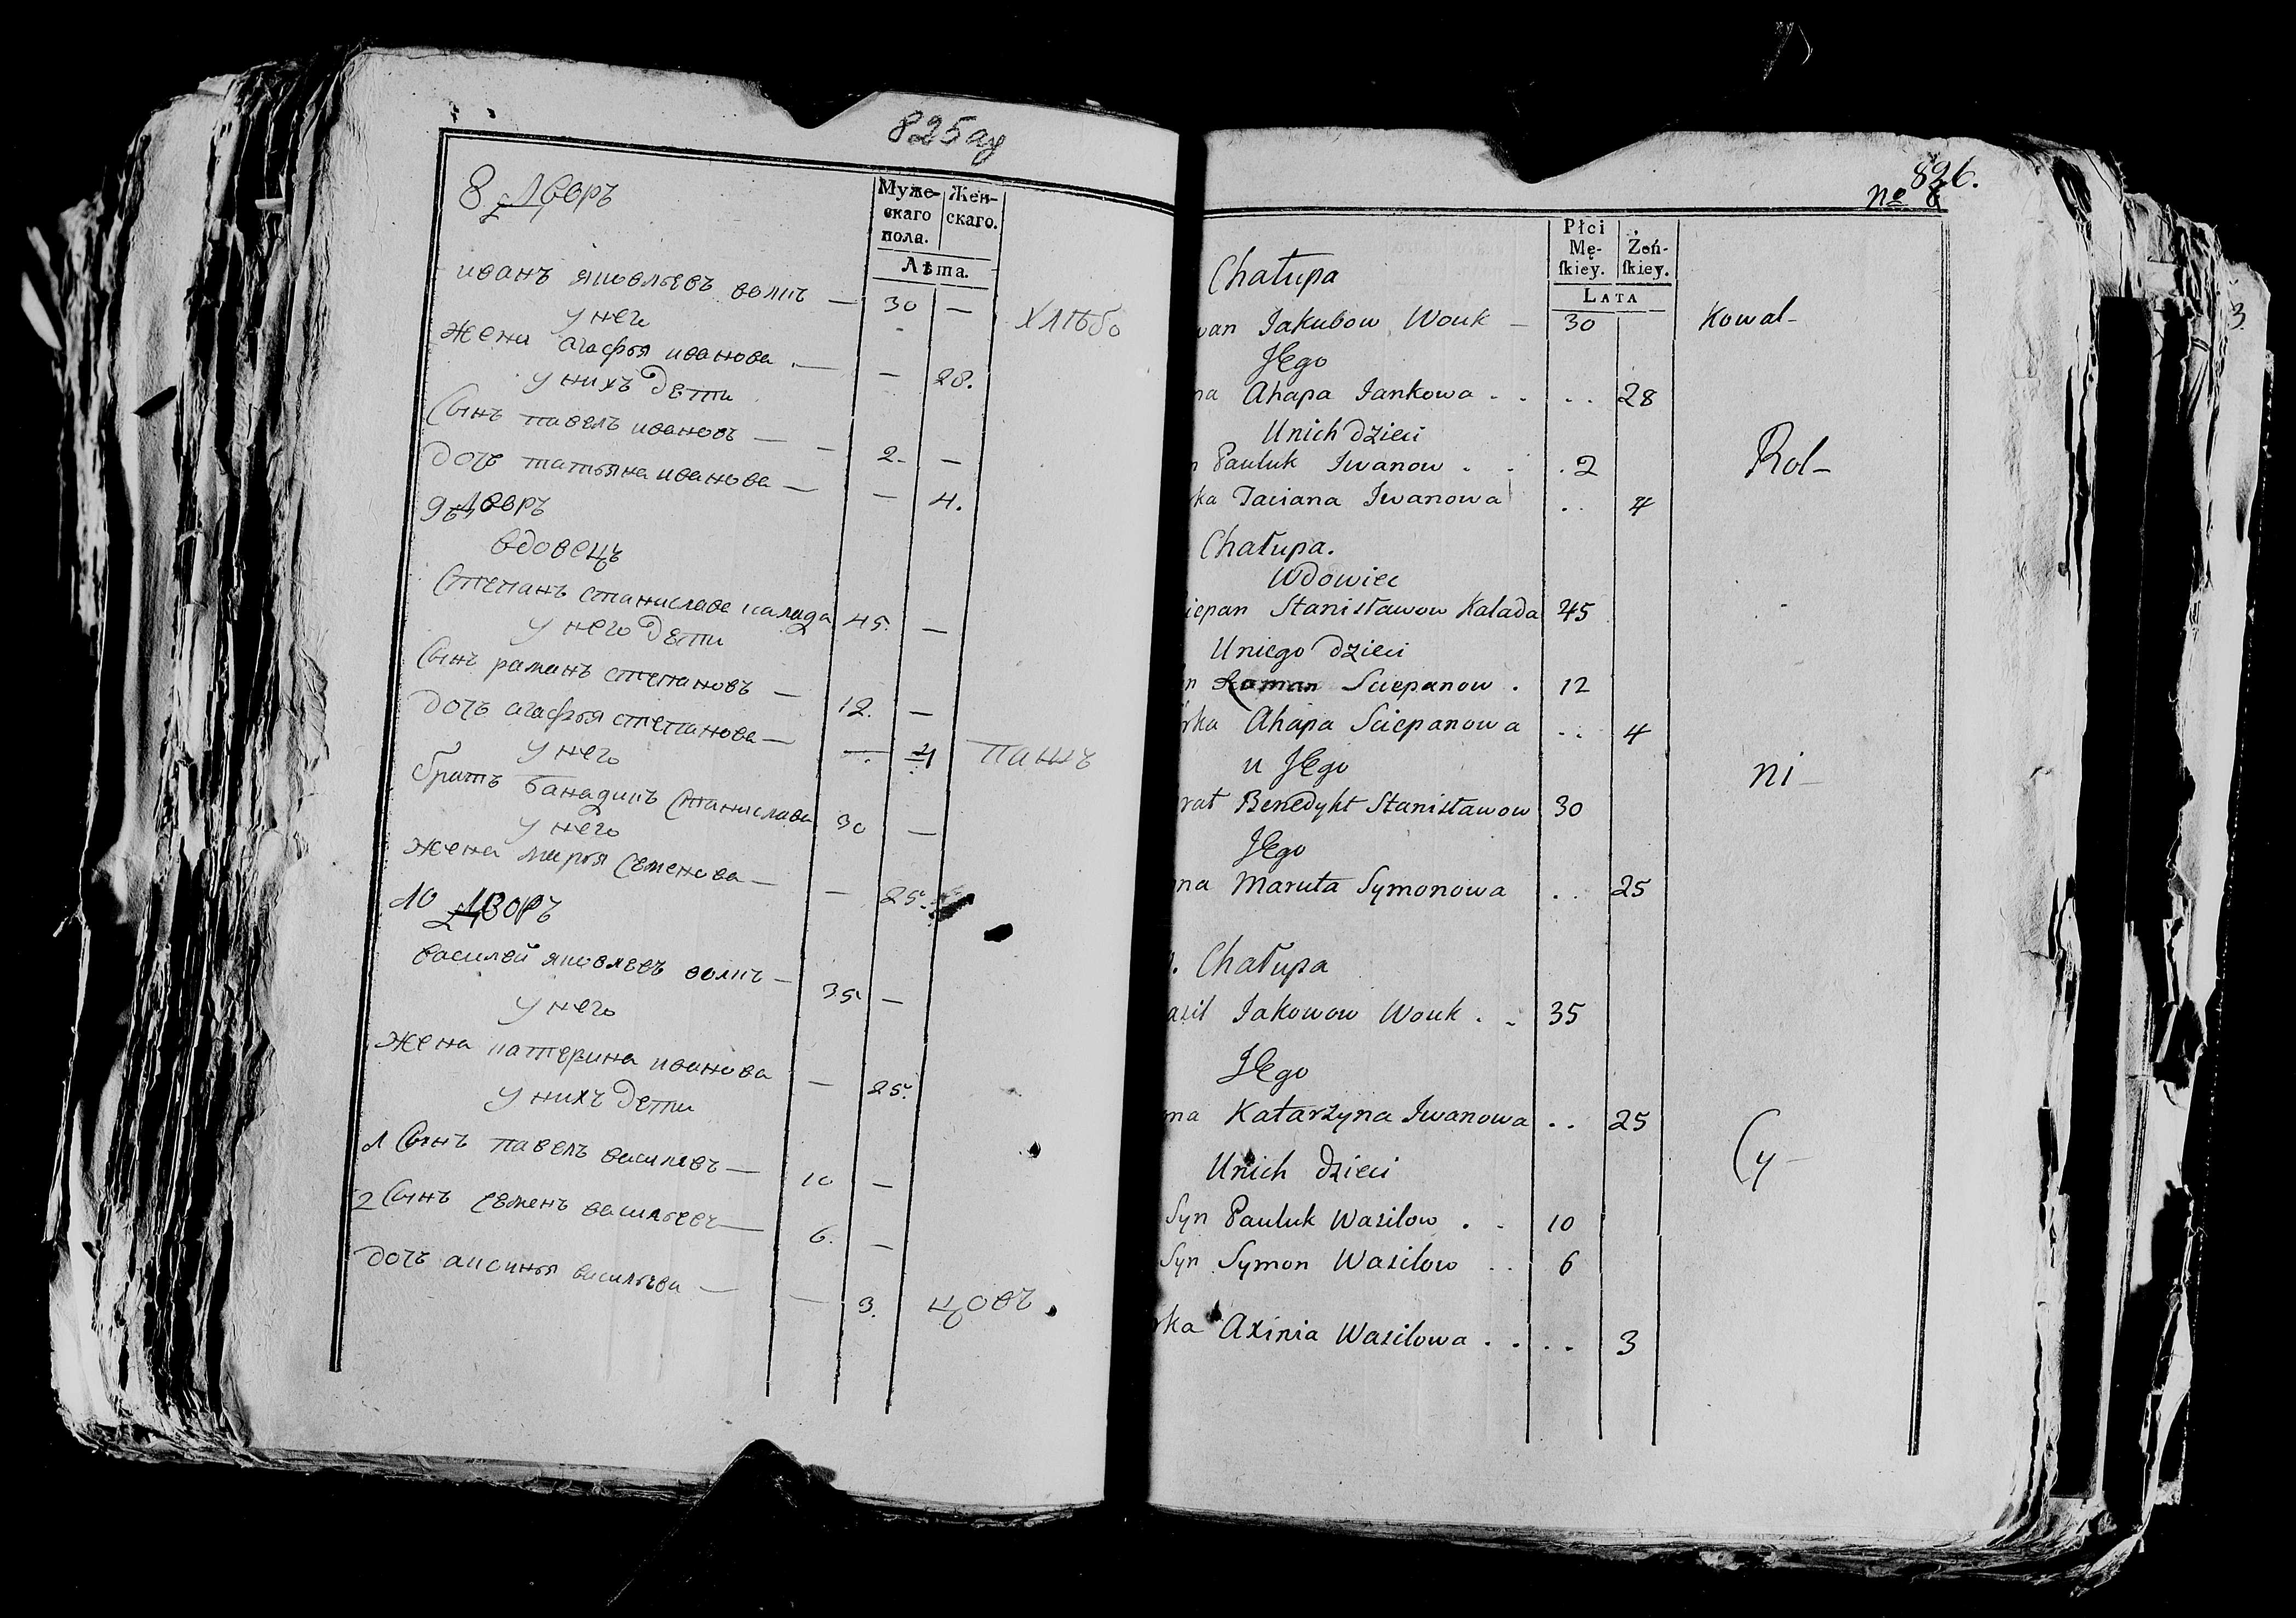 825 ау
8 Дворъ
Муже-
скаго
пола.
Жен-
скаго.
Лѣта.
иванъ яковлевъ волкъ — 30 —
хлѣбо
у него
жена агафья иванова — — 28.
у нихъ дети
Сынъ павелъ ивановъ — 2. —
дочь татьяна иванова — — 4.
9 Дворъ
вдовецъ
Степанъ станиславо калада 45. —
у него дети
Сынъ раманъ степановъ — 12. —
дочь агафья степанова — — 4
пашъ
у него
братъ банадикъ Станиславо 30 —
у него
жена марья семенова — — 25.
10 Дворъ
василей яковлевъ волкъ — 35 —
у него
жена катерина иванова — 25.
у нихъ дети
1 Сынъ павелъ василевъ — 10 —
2 Сынъ семенъ васильевъ — 6. —
дочь аксинья васильева — — 3.
цовъ.
826.
No 8
Płci
Mę-
skiey.
Żeń-
skiey.
LATA
Chałupa
wan Jakubow Wouk — 30
Kowal-
JEgo
na Ahapa Jankowa . . . . 28
Unich dzieci
n Pauluk Iwanow . . . 2
Rol-
ka Taciana Iwanowa . . 4
Chałupa.
Wdowiec
iepan Stanisławow Kalada 45
Uniego dzieci
n Roman Sciepanow . 12
rka Ahapa Sciepanowa . . 4
u JEgo
ni-
rat Benedykt Stanisławow 30
JEgo
na Maruta Symonowa . . 25
. Chałupa
azil Jakowow Wouk . . 35
JEgo
na Katarzyna Iwanowa . . 25
Cy-
Unich dzieci
Syn Pauluk Wazilow . . 10
Syn Symon Wazilow . . 6
rka Axinia Wazilowa . . . . 3